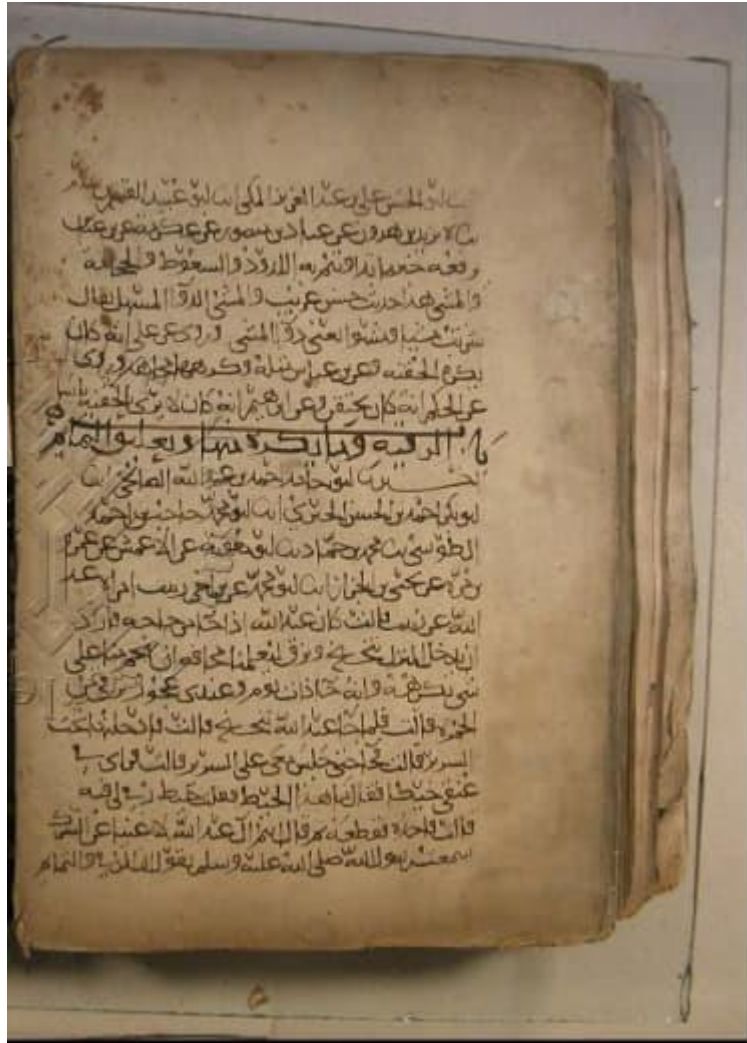 علي بن عبد العزيز المكي ابو عبيد القسم
يزيد بن هرون عن عباد بن منصور عن عكرمة عن ابن عباس
رفعه خير ما تداويتم به اللدود والسعوط والحجامة
والمشي هذا حديث حسن غريب والمشي الدوا المسهل يقال
شربت مشيا ومشوا يعني دوا المشي وروي عن علي انه كان
يكره الحقنة وعن ابن عباس مثله وكرهها مجاهد وروي
عن الحكم انه كان يحتقن وعن ابراهيم انه كان لا يرى بالحقنة باسا
باب الرقية وما يكره منها وتعليق التمايم
اخبرنا ابو حامد احمد بن عبد الله الصالحي
ابو بكر احمد بن الحسن الحيري ابو محمد حاجب بن احمد
الطوسي محمد بن حماد ابو معوية عن الاعمش عن عمرو
بن مرة عن يحيى بن الجزار عن ابن اخي زينب امراة عبد
الله عن زينب قالت كان عبد الله اذا جا من حاجة فاراد
ان يدخل المنزل تنحنح وبزق مخافة ان يهجم منا على
شي يكرهه وانه جا ذات يوم وعندي عجوز ترقي من
الحمرة قالت فلما جا عبد الله تنحنح قالت فادخلتها تحت
السرير قالت فجا حتى جلس معي على السرير قالت فراى في
عنقي خيطا فقال ما هذا الخيط فقلت خيط رقي لي فيه
قالت فاخذه فقطعه ثم قال انتم ال عبد الله لاغنيا عن الشرك
سمعت رسول الله صلى الله عليه وسلم يقول ان الرقى والتمايم